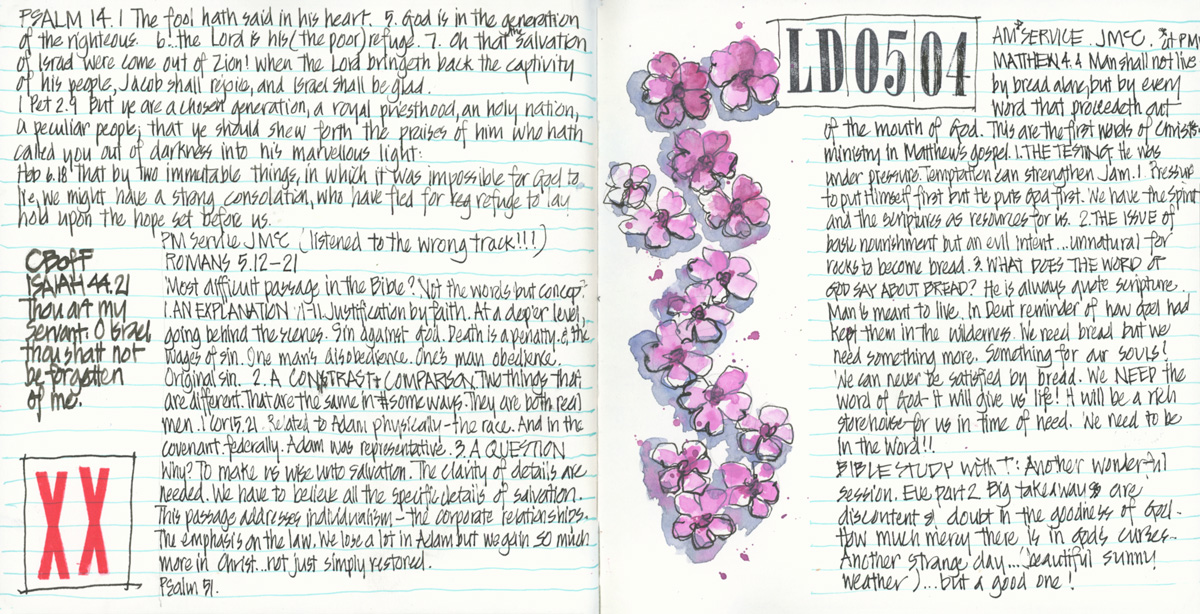 PSALM 14.1 The fool hath said in his heart. 5. God is in the generation
of the righteous. 6. the Lord is his (the poor) refuge. 7. Oh that the salvation
of Israel were come out of Zion! When the Lord bringeth back the captivity
of his people, Jacob shall rejoice, and Israel shall be glad.
1 Pet 2.9 But ye are a chosen generation, a royal priesthood, an holy nation,
a peculiar people; that ye should shew forth the praises of him who hath
called you out of darkness into his marvellous light:
Heb 6.18 That by two immutable things, in which it was impossible for God to
lie, we might have a strong consolation, who have fled for refuge to lay
hold upon the hope set before us.
PM Service JMC (listened to the wrong track!!!)
ROMANS 5.12-21
Most difficult passage in the Bible? Not the words but concept?
1. AN EXPLANATION 1-11 Justification by faith. At a deeper level,
going behind the scenes. Sin against God. Death is a penalty. & the
wages of sin. One man's disobedience. One's man obedience.
Original sin. 2. A CONSTRAST & COMPARISON. Two things that
are different. That are the same in some ways. They are both real
men. 1 Cor 15.21 Related to Adam physically-the race. And in the
covenant-federally. Adam was representative. 3. A QUESTION
Why? To make us wise unto salvation. The clarity of details are
needed. We have to believe all the specific details of salvation.
This passage addresses individualism-the corporate relationships.
The emphasis on the law. We lose a lot in Adam but we gain SO much
more in Christ...not just simply restored.
Psalm 51.
CBofF
ISAIAH 44.21
Thou art my
servant: O Israel,
thou shalt not
be forgotten
of me.
XX
LD 05 04
AM SERVICE. JMC. at PM
MATTHEW 4.4 Man shall not live
by bread alone, but by every
word that proceedeth out
of the mouth of God. This are the first words of Christ's
ministry in Matthew's gospel. 1. THE TESTING He was
under pressure. Temptation can strengthen Jam. 1. Pressure
to put Himself first but He puts God first. We have the Spirit
and the scriptures as resources for us. 2. THE ISSUE OF
basic nourishment but an evil intent...unnatural for
rocks to become bread. 3. WHAT DOES THE WORD OF
GOD SAY ABOUT BREAD? He is always quote scripture.
Man is meant to live. In Deut reminder of how God had
kept them in the wilderness. We need bread but we
need something more. Something for our souls!
We can never be satisfied by bread. We NEED the
word of God-it will give us life! It will be a rich
storehouse-for us in time of need. We need to be
in the Word!!
BIBLE STUDY with T: Another wonderful
session. Eve part 2 Big takeaways are
discontent & doubt in the goodness of God-
How much mercy there is in God's curses-
Another strange day...(beautiful sunny
weather)...but a good one!